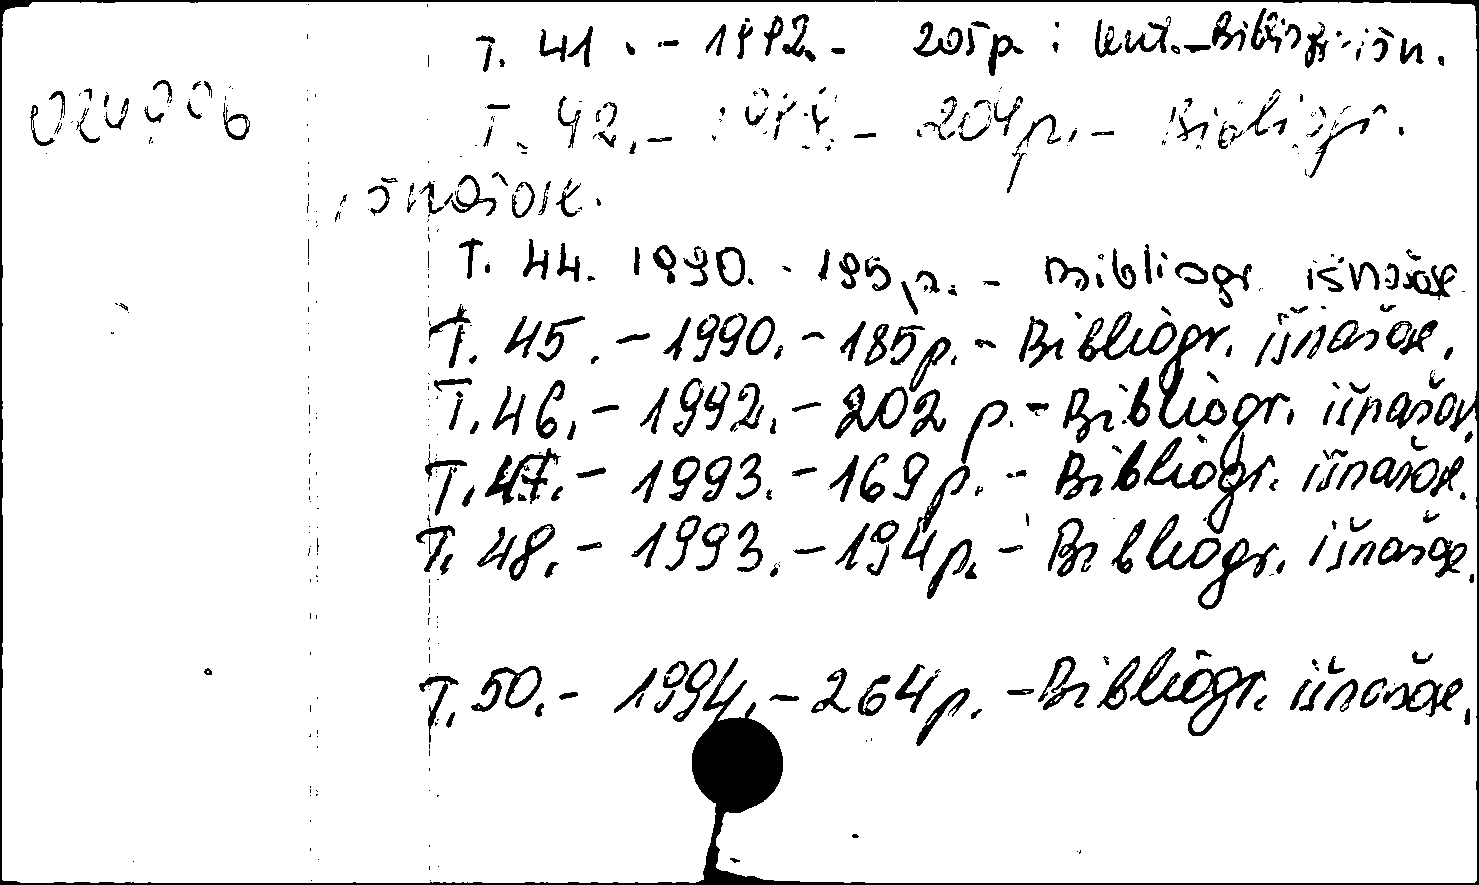 T. 41. - 1992. - 205 p. : - Bibliogr. išn.
T. 42. - - 204 p. - Bibliogr.
išnašose.
T. 44. 1990. - 195 p. - Bibliogr. išnašose
T. 45. - 1990. - 185 p. - Bibliogr. išnašose.
T. 46. - 1992. - 202 p. - Bibliogr. išnašos.
T. 47. - 1993. - 169 p. - Bibliogr. išnašose.
T. 48. - 1993. - 194 p. - Bibliogr. išnašose.
T. 50. - 1994. - 264 p. - Bibliogr. išnašose.